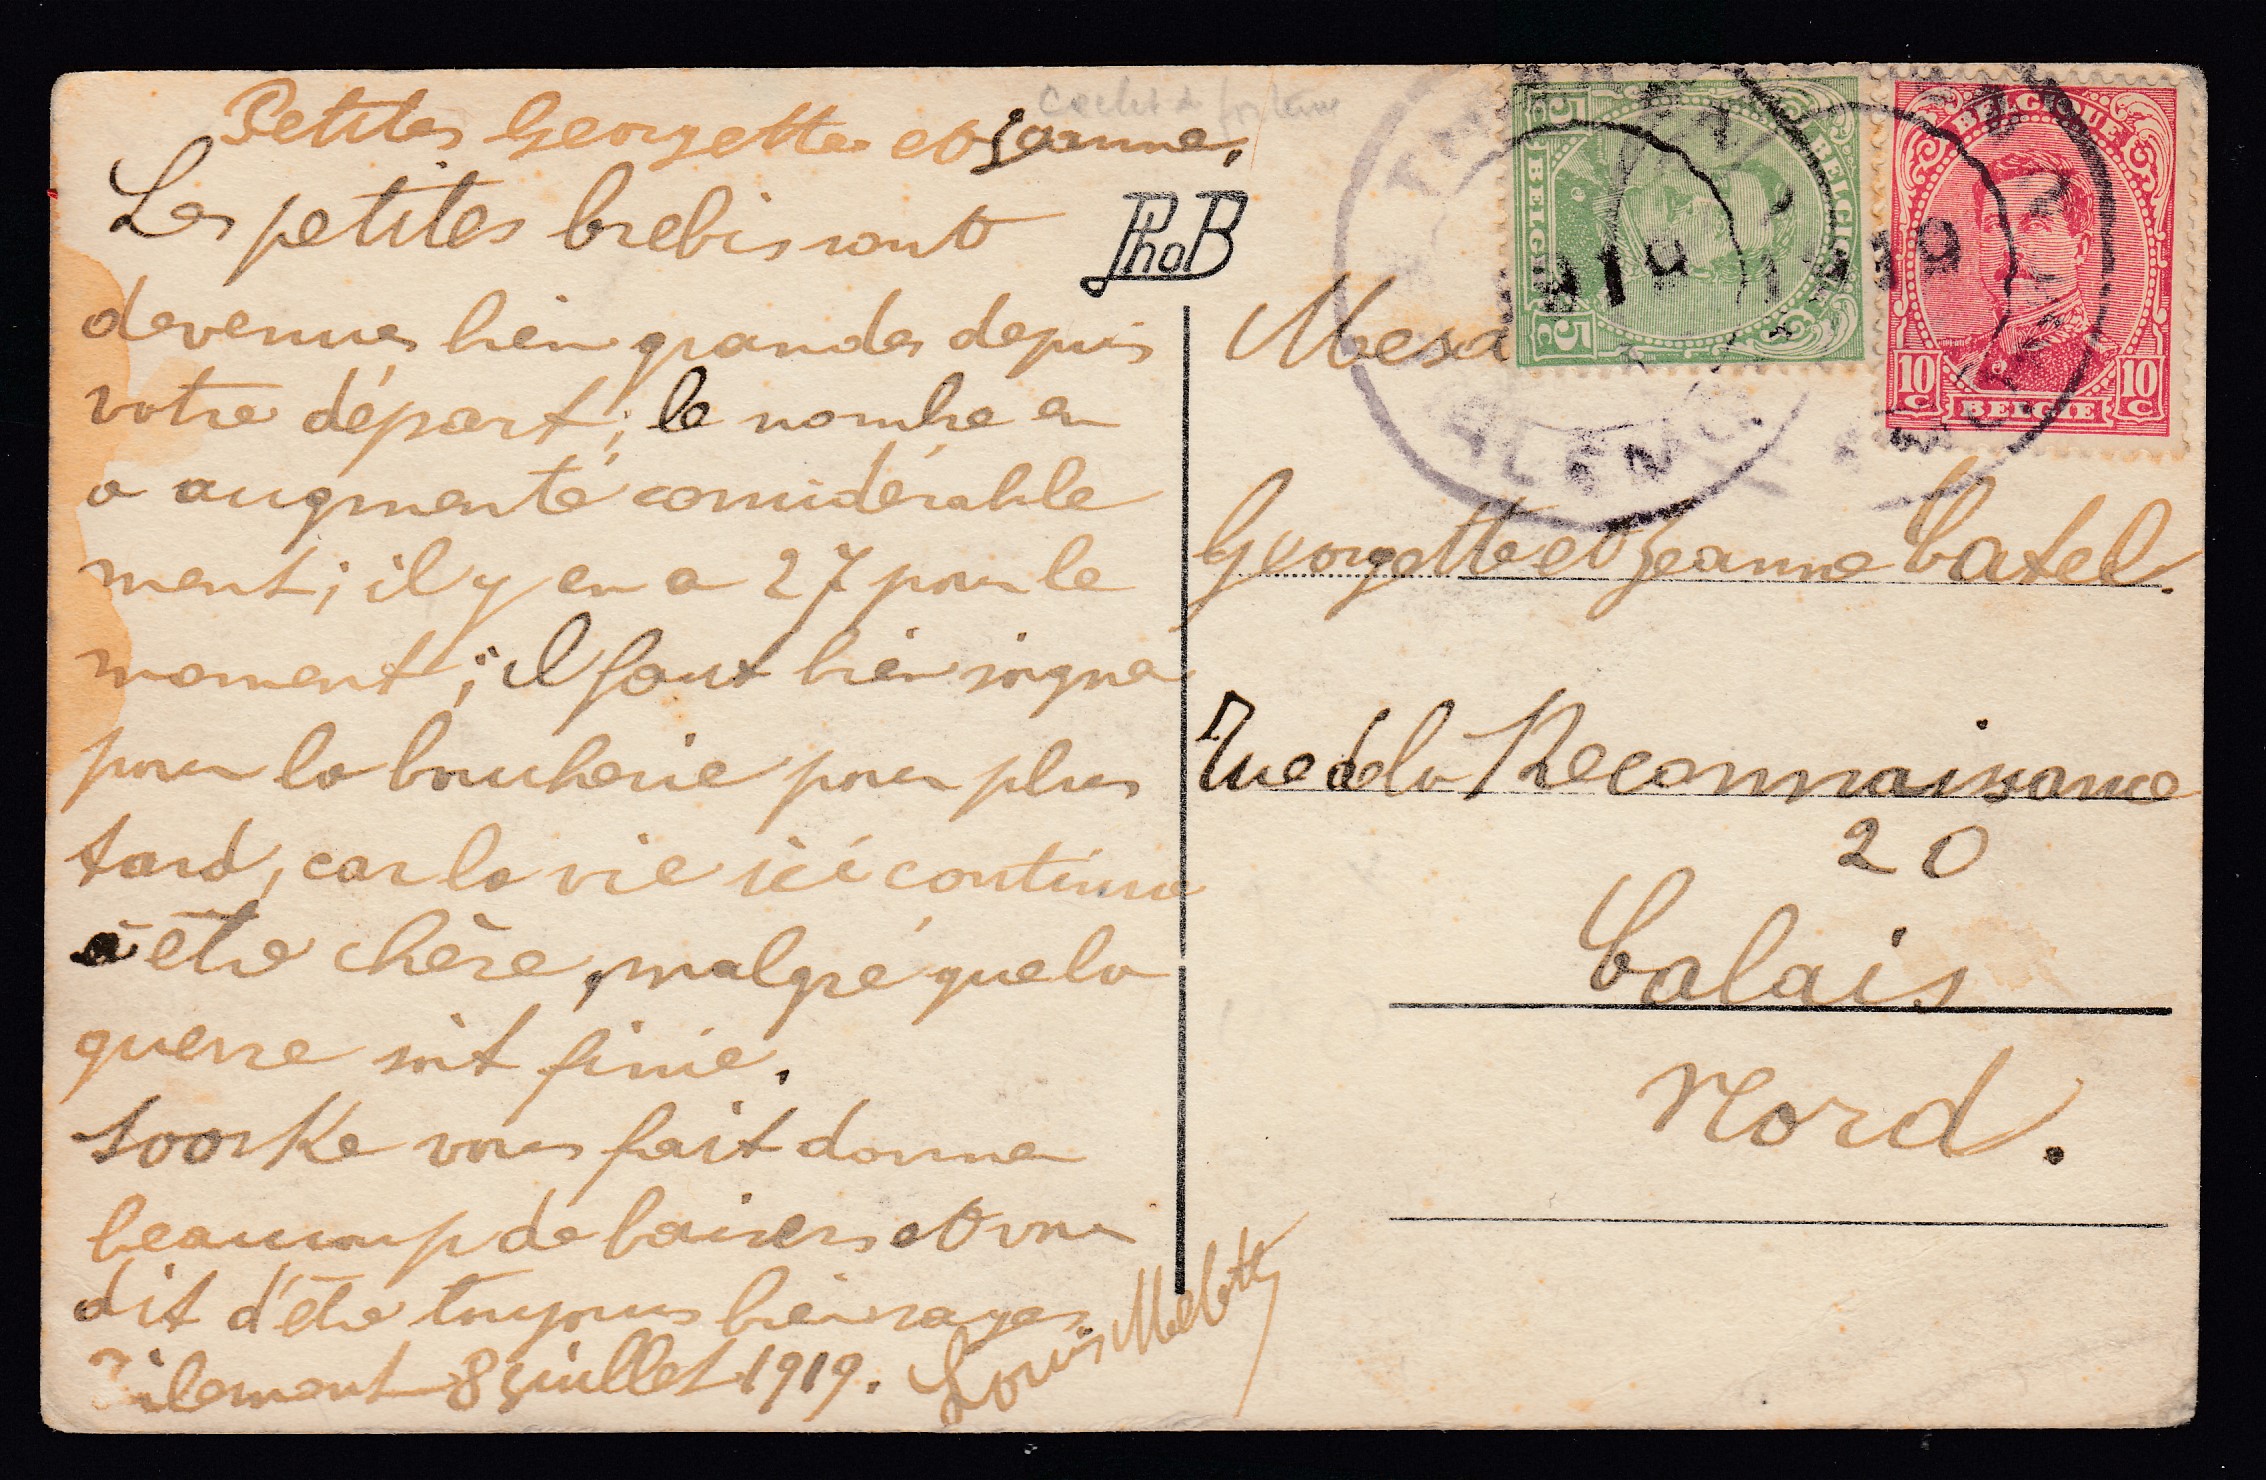 Petites Georgette et Jeanne,
Les petites brebis sont
devenues bien grandes depuis
votre départ; le nombre en
a augmenté considérable
ment; il y en a 27 pour le
moment; il faut bien soigner
pour la boucherie pour plus
tard, car la vie ici continue
à être chère, malgré que la
guerre soit finie.
vous fait donner
beaucoup de baisers et vous
dit d'être toujours bien sages.
Tilemont 8 juillet 1919. Louis Melotte
cachet de fortune
PhoB
BELGIQUE
BELGIË
5c
5c
BELGIQUE
10c BELGIE 10c
Mesd
Georgette et Jeanne Catel.
Rue de la Reconnaissance
20
Calais
Nord.